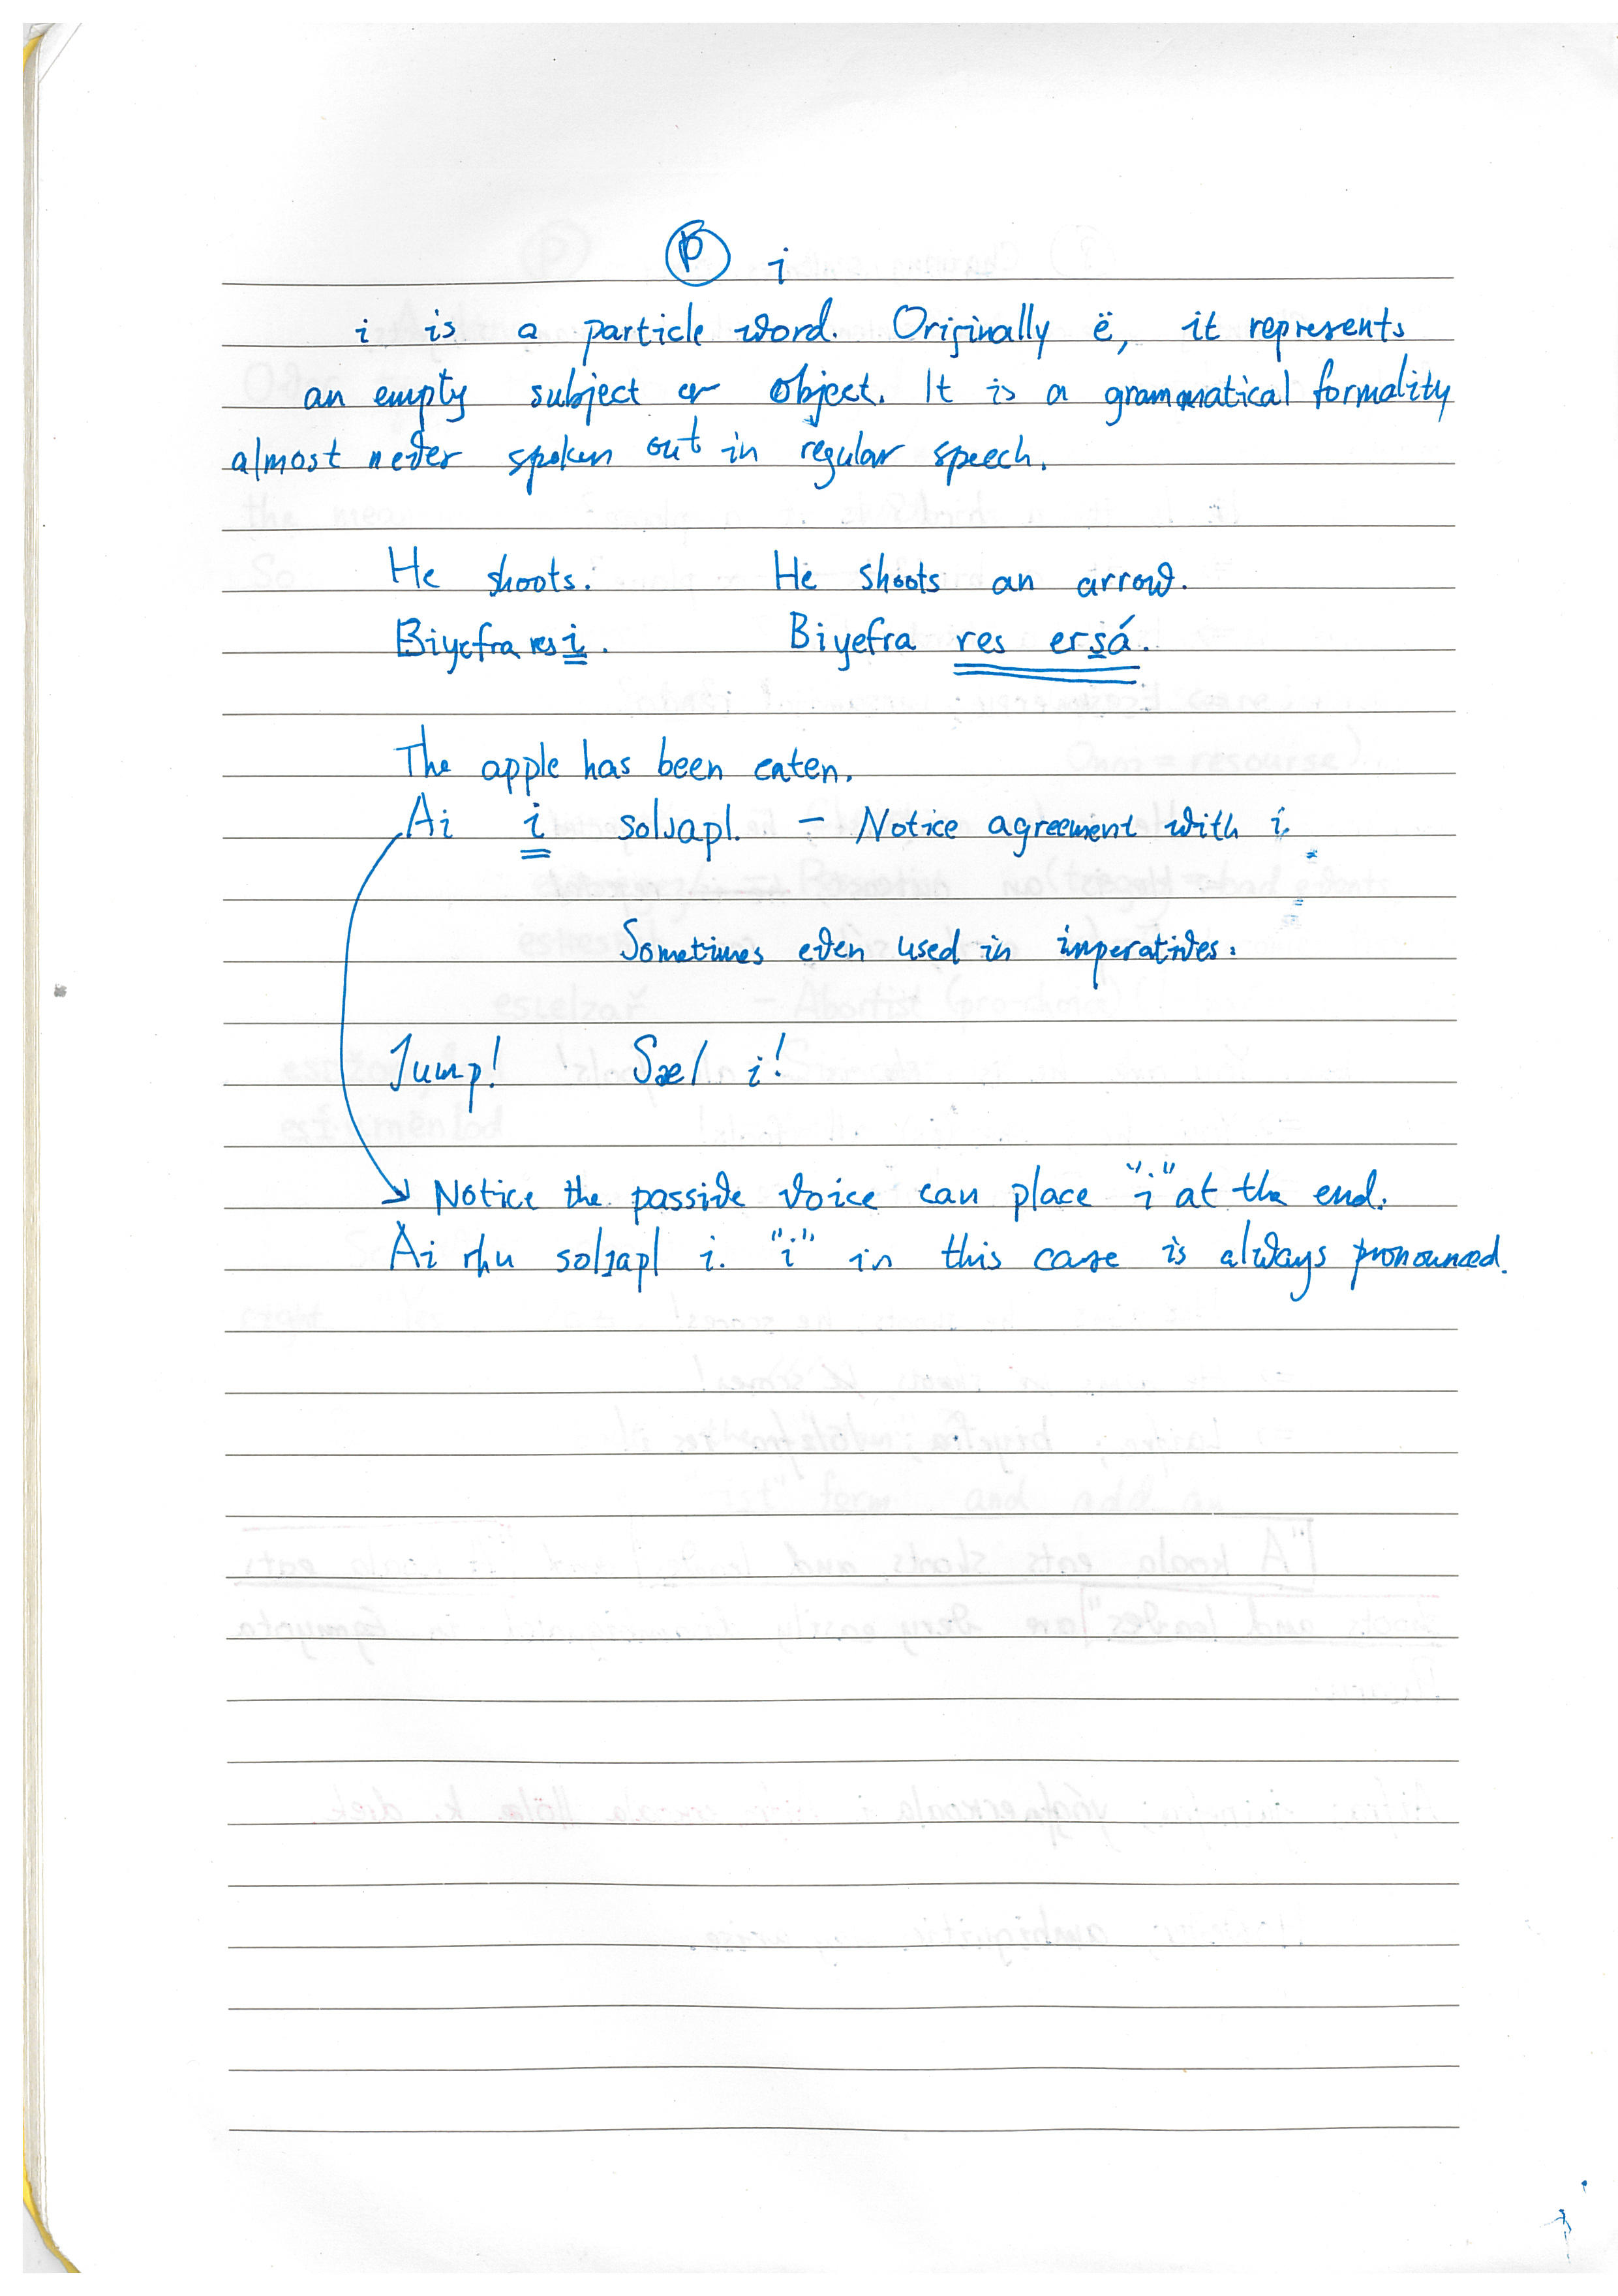 Ⓟ i
i is a particle word. Originally ë, it represents
an empty subject or object. It is a grammatical formality
almost never spoken out in regular speech.
He shoots. He shoots an arrow.
Biyefra res i. Biyefra res ersá.
The apple has been eaten.
Ai i solsapl. – Notice agreement with i.
Sometimes even used in imperatives:
Jump! Sæl i!
→ Notice the passive voice can place "i" at the end.
Ai rhu solsapl i. "i" in this case is always pronounced.